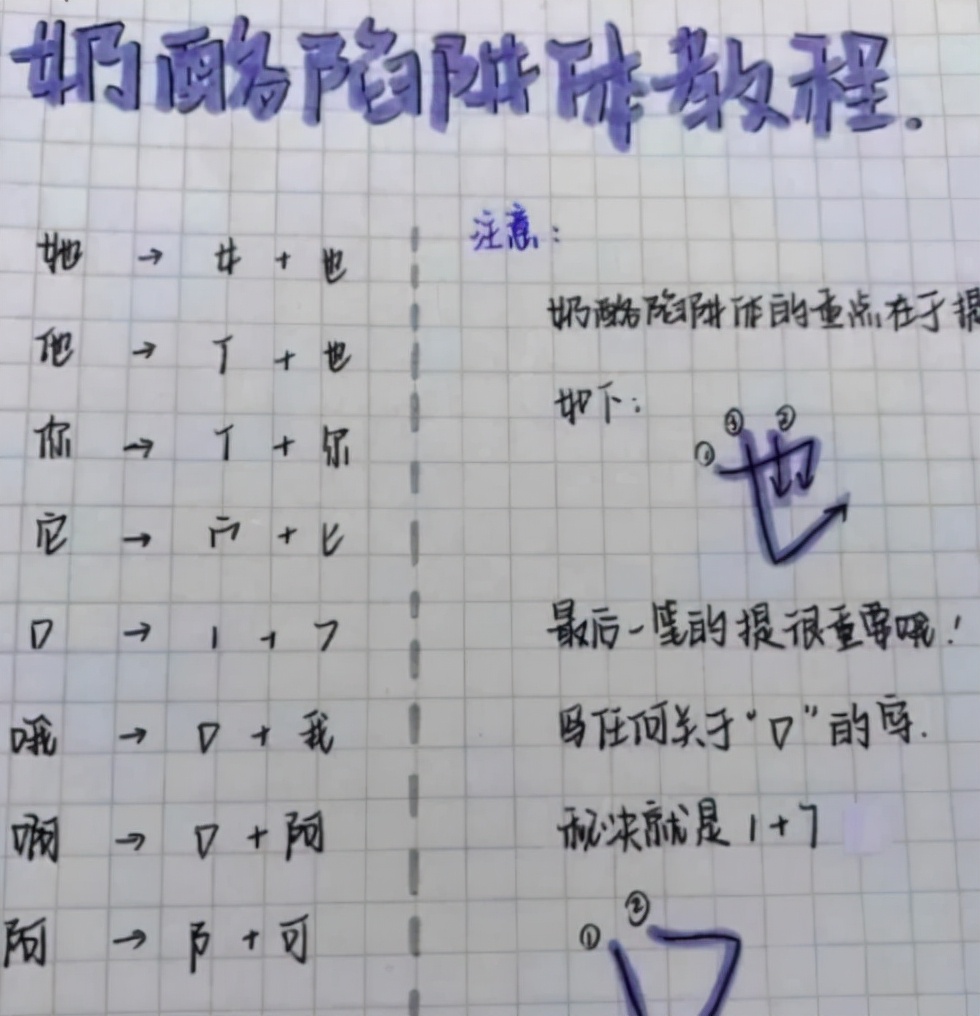 奶酪陷阱体教程.
她 → 女 + 也
他 → 亻 + 也
你 → 亻 + 尔
它 → 宀 + 匕
口 → 1 + 7
哦 → 口 + 我
啊 → 口 + 阿
阿 → 阝 + 可
注意:
奶酪陷阱体的重点在于提
如下:
① ③ ②
也
最后一笔的提很重要哦!
写任何关于“口”的字.
秘决就是 1 + 7
① ②